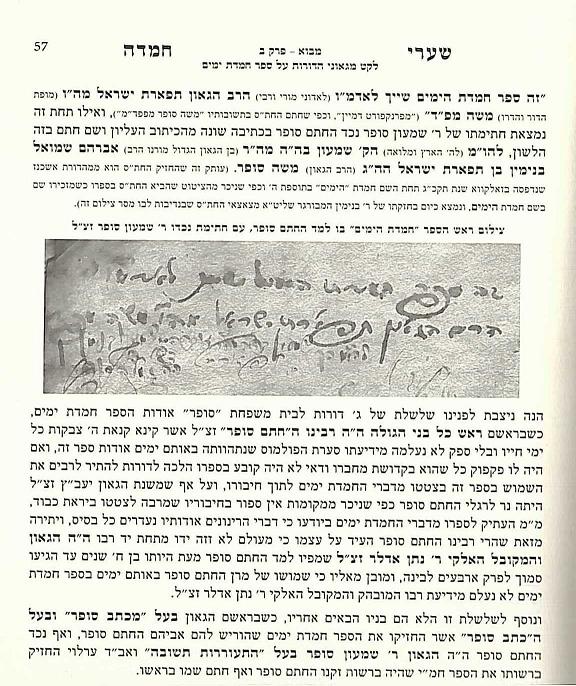 57
שערי
מבוא – פרק ב
חמדה
לקט מגאוני הדורות על ספר חמדת ימים
"זה ספר חמדת הימים שייך לאדמו"ז (לאדוני מורי ורבי) הרב הגאון תפארת ישראל מה"ו (מופת
הדור והדרו) משה מפ"ד" ("מפרנקפורט דמיין", וכפי שחתם החת"ס בתשובותיו "משה סופר מפפד"מ"), ואילו תחת זה
נמצאת חתימתו של ר' שמעון סופר נכד החתם סופר בכתיבה שונה מהכיתוב העליון ושם חתם בזה
הלשון, להו"מ (לה' הארץ ומלואה) הק' שמעון בה"ה מה"ר (בן הגאון הגדול מורנו הרב) אברהם שמואל
בנימין בן תפארת ישראל הה"ג (הרב הגאון) משה סופר. (עותק זה שהחזיק החת"ס הוא ממהדורת אשכנז
שנדפסה בזאלקווא שנת תקכ"ג תחת השם חמדת "הימים" בתוספת ה' וכפי שניכר מהציטוט שהביא החת"ס בספרו כשמזכירו שם
בשם חמדת הימים, ונמצא כיום בחזקתו של ר' בנימין המבורגר שליט"א מצאצאי החת"ס שבנדיבות לבו מסר צילום זה).
צילום ראש הספר "חמדת הימים" בו למד החתם סופר, עם חתימת נכדו ר' שמעון סופר זצ"ל
זה ספר חמדת הימים שייך לאדמו"ז
הרב הגאון תפארת ישראל מה"ו משה
הנה ניצבת לפנינו שלשלת של ג' דורות לבית משפחת "סופר" אודות הספר חמדת ימים,
כשבראשם ראש כל בני הגולה ה"ה רבינו ה"חתם סופר" זצ"ל אשר קינא קנאת ה' צבקות כל
ימי חייו ובלי ספק לא נעלמה מידיעתו סערת הפולמוס שנתהוותה באותם ימים אודות ספר זה, ואם
היה לו פקפוק כל שהוא בקדושת מחברו ודאי לא היה קובע בספרו הלכה לדורות להתיר לרבים את
השמוש בספר זה בצטטו מדברי החמדת ימים לתוך חיבורו, ועל אף שמשנת הגאון יעב"ץ זצ"ל
היתה נר לרגלי החתם סופר כפי שניכר ממקומות אין ספור בחיבוריו שמרבה לצטטו ביראת כבוד,
מ"מ העתיק לספרו מדברי החמדת ימים ביודעו כי דברי הרינונים אודותיו נעדרים כל בסיס, ויתירה
מזאת שהרי רבינו החתם סופר העיד על עצמו כי מעולם לא זזה ידו מתחת יד רבו ה"ה הגאון
והמקובל האלקי ר' נתן אדלר זצ"ל שמפיו למד החתם סופר מעת היותו בן ח' שנים עד הגיעו
סמוך לפרק ארבעים לבינה, ומובן מאליו כי שמושו של מרן החתם סופר באותם ימים בספר חמדת
ימים לא נעלם מידיעת רבו המובהק והמקובל האלקי ר' נתן אדלר זצ"ל.
ונוסף לשלשלת זו הלא הם בניו הבאים אחריו, כשבראשם הגאון בעל "מכתב סופר" ובעל
ה"כתב סופר" אשר החזיקו את הספר חמדת ימים שהוריש להם אביהם החתם סופר, ואף נכד
החתם סופר ה"ה הגאון ר' שמעון סופר בעל "התעוררות תשובה" ואב"ד ערלוי החזיק
ברשותו את הספר חמ"י שהיה ברשות זקנו החתם סופר ואף חתם שמו בראשו.